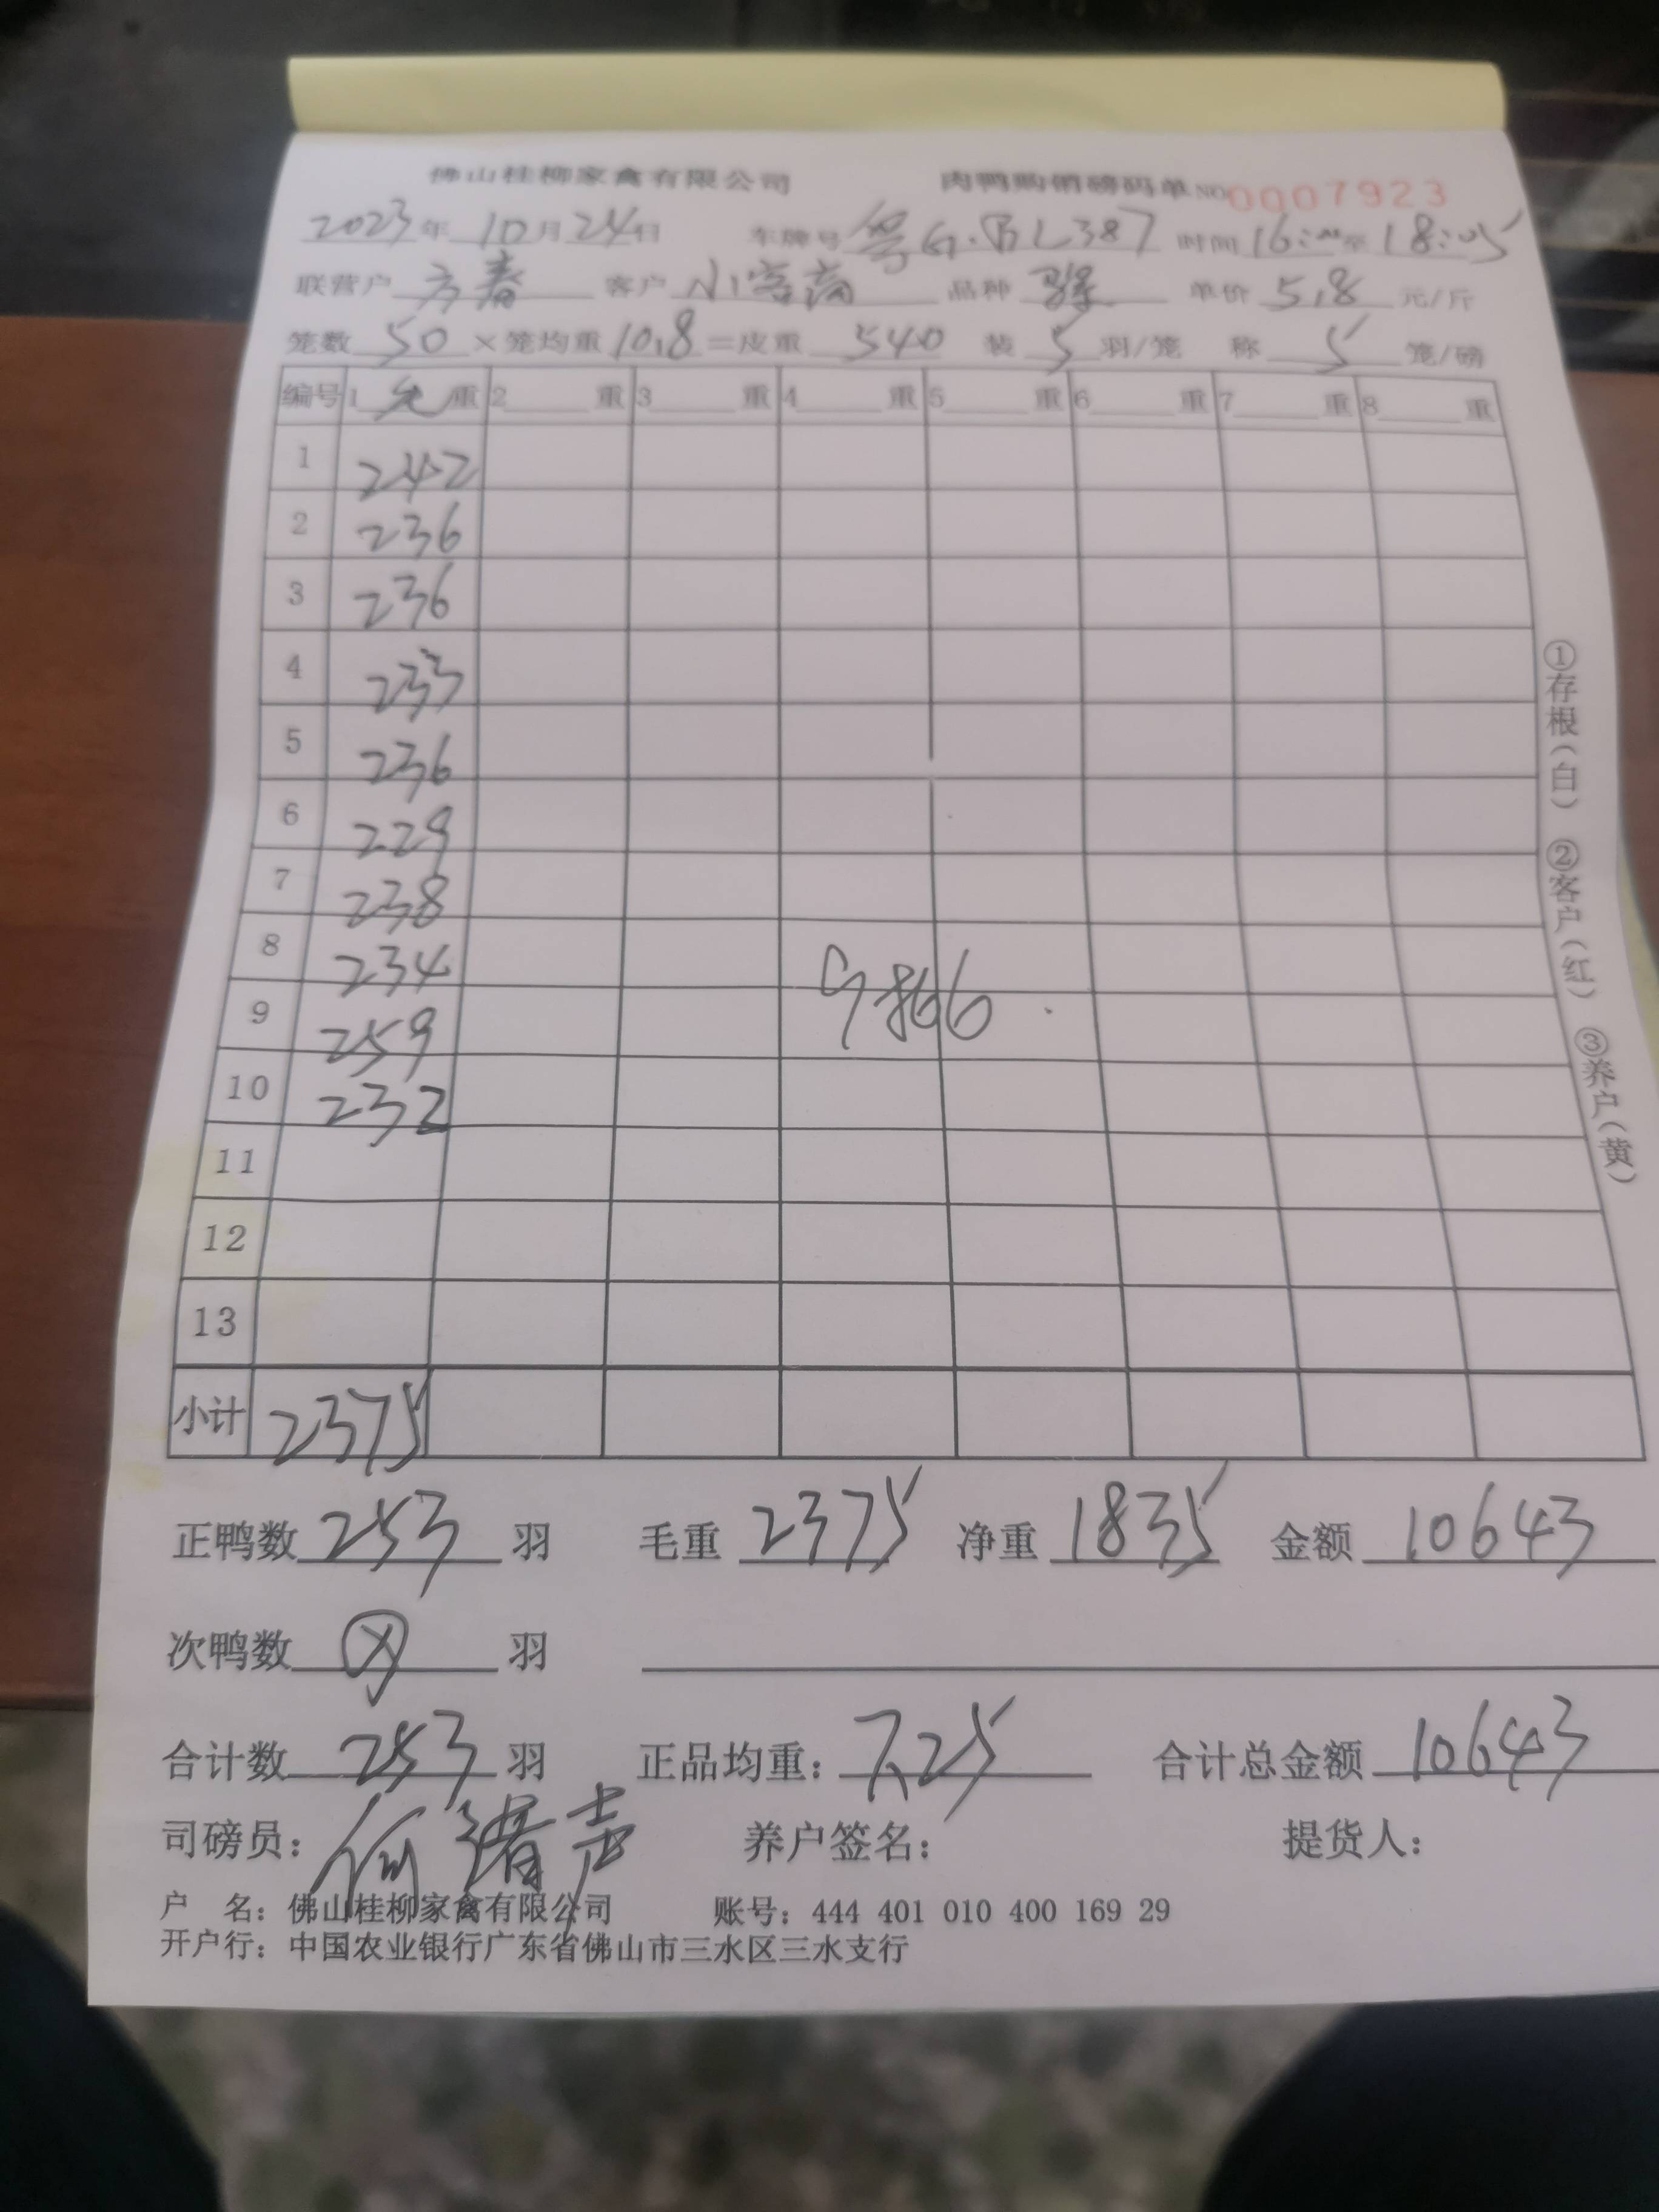 佛山桂柳家禽有限公司 肉鸭购销磅码单 NO 0007923
2023年10月24日 车牌号 粤G·BL387 时间 16: 至18:05
联营户 春 客户 小 品种 单价 5.8 元/斤
笼数 50 ×笼均重 10.8 =皮重 540 装 5 羽/笼 称 5 笼/磅
编号 1 重 2 重 3 重 4 重 5 重 6 重 7 重 8 重
1 242
2 236
3 236
4 233
5 236
6 229
7 238
8 234
9 259
10 232
11
12
13
小计 2375
①存根(白) ②客户(红) ③养户(黄)
正鸭数 253 羽 毛重 2375 净重 1835 金额 10643
次鸭数 羽
合计数 253 羽 正品均重: 7.25 合计总金额 10643
司磅员: 何 声 养户签名: 提货人:
户 名: 佛山桂柳家禽有限公司 账号: 444 401 010 400 169 29
开户行: 中国农业银行广东省佛山市三水区三水支行